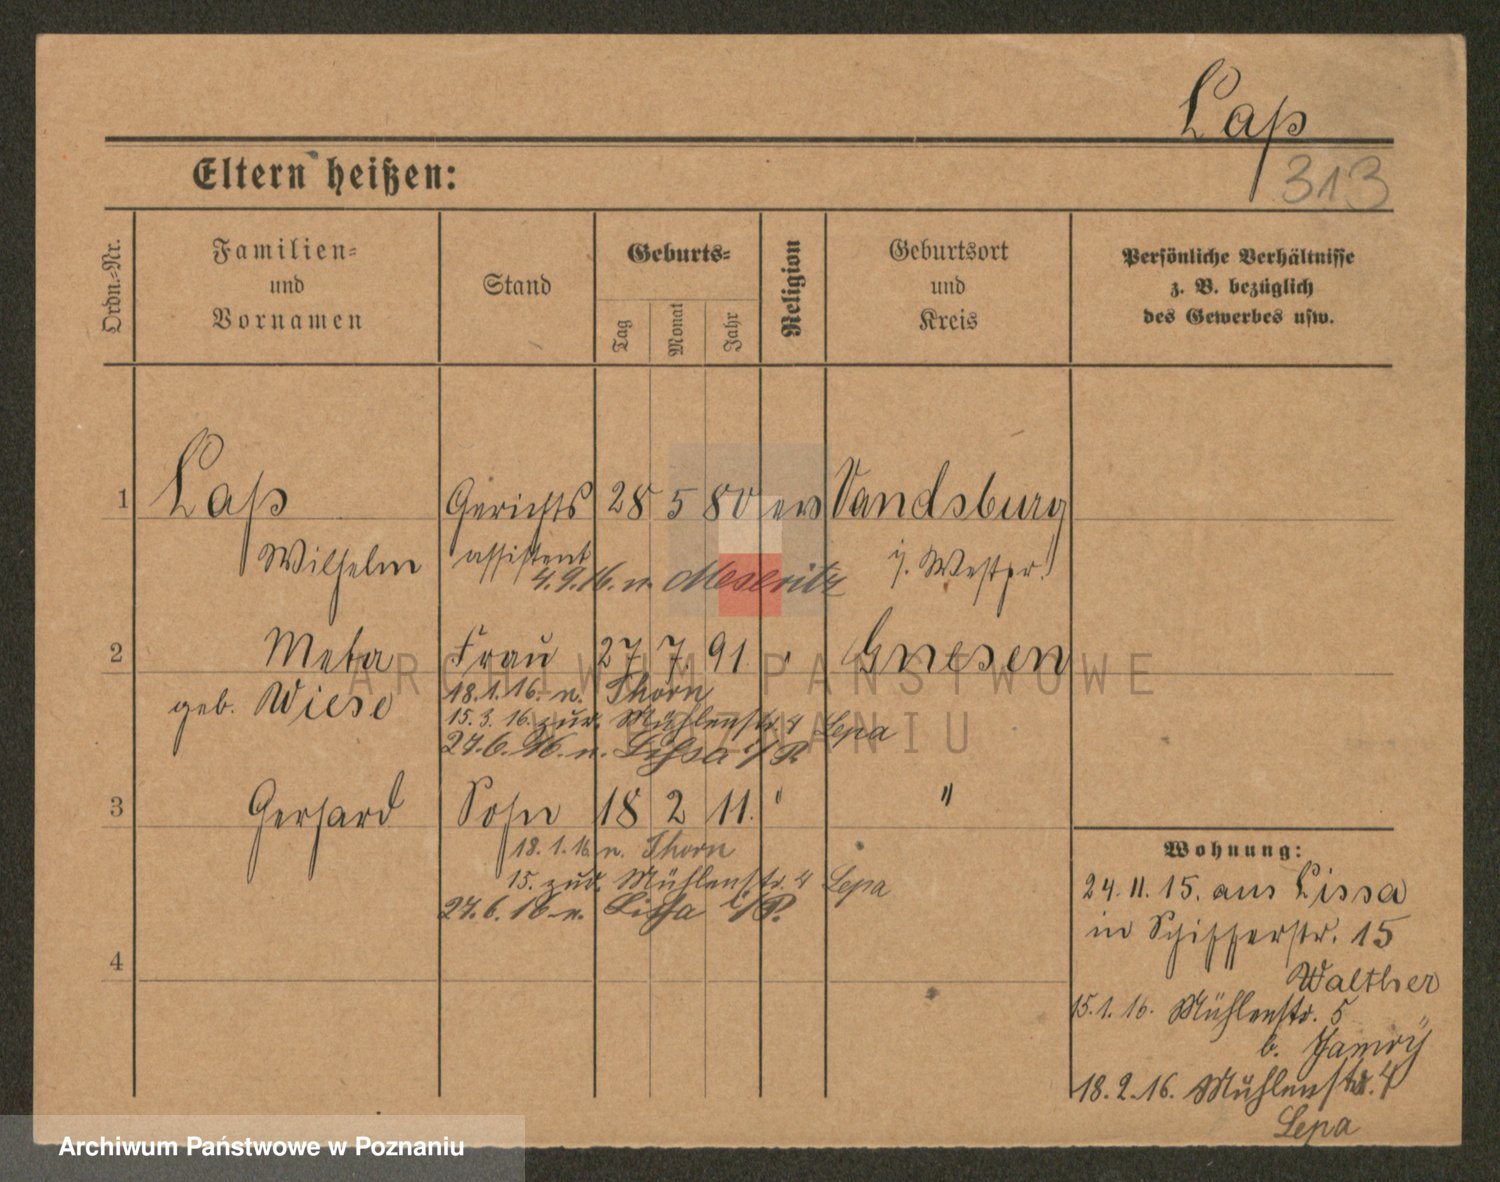 Laß
313
Eltern heißen:
Ordn.-Nr.
Familien-
und
Vornamen
Stand
Geburts-
Tag
Monat
Jahr
Religion
Geburtsort
und
Kreis
Persönliche Verhältnisse
z. B. bezüglich
des Gewerbes usw.
1 Laß Gerichts 28 5 80 ev Vandsburg
Wilhelm assistent i. Westpr.
4.9.16. n. Meseritz
2 Meta Frau 27 7. 91. " Gnesen
geb. Wiese 18.1.16. n. Thorn
15.3.16. zur. Mühlenstr. 4 Lepa
27.6.16. n. Lissa i/P.
3 Gerhard Sohn 18 2 11. " "
18.1.16 n. Thorn
15. zur. Mühlenstr. 4 Lepa
27.6.16 n. Lissa i/P.
4
Wohnung:
24.11.15. aus Lissa
in Schifferstr. 15
Walther
15.1.16. Mühlenstr. 5
b.
18.2.16. Mühlenstr. 4
Lepa
ARCHIWUM PAŃSTWOWE
W POZNANIU
Archiwum Państwowe w Poznaniu